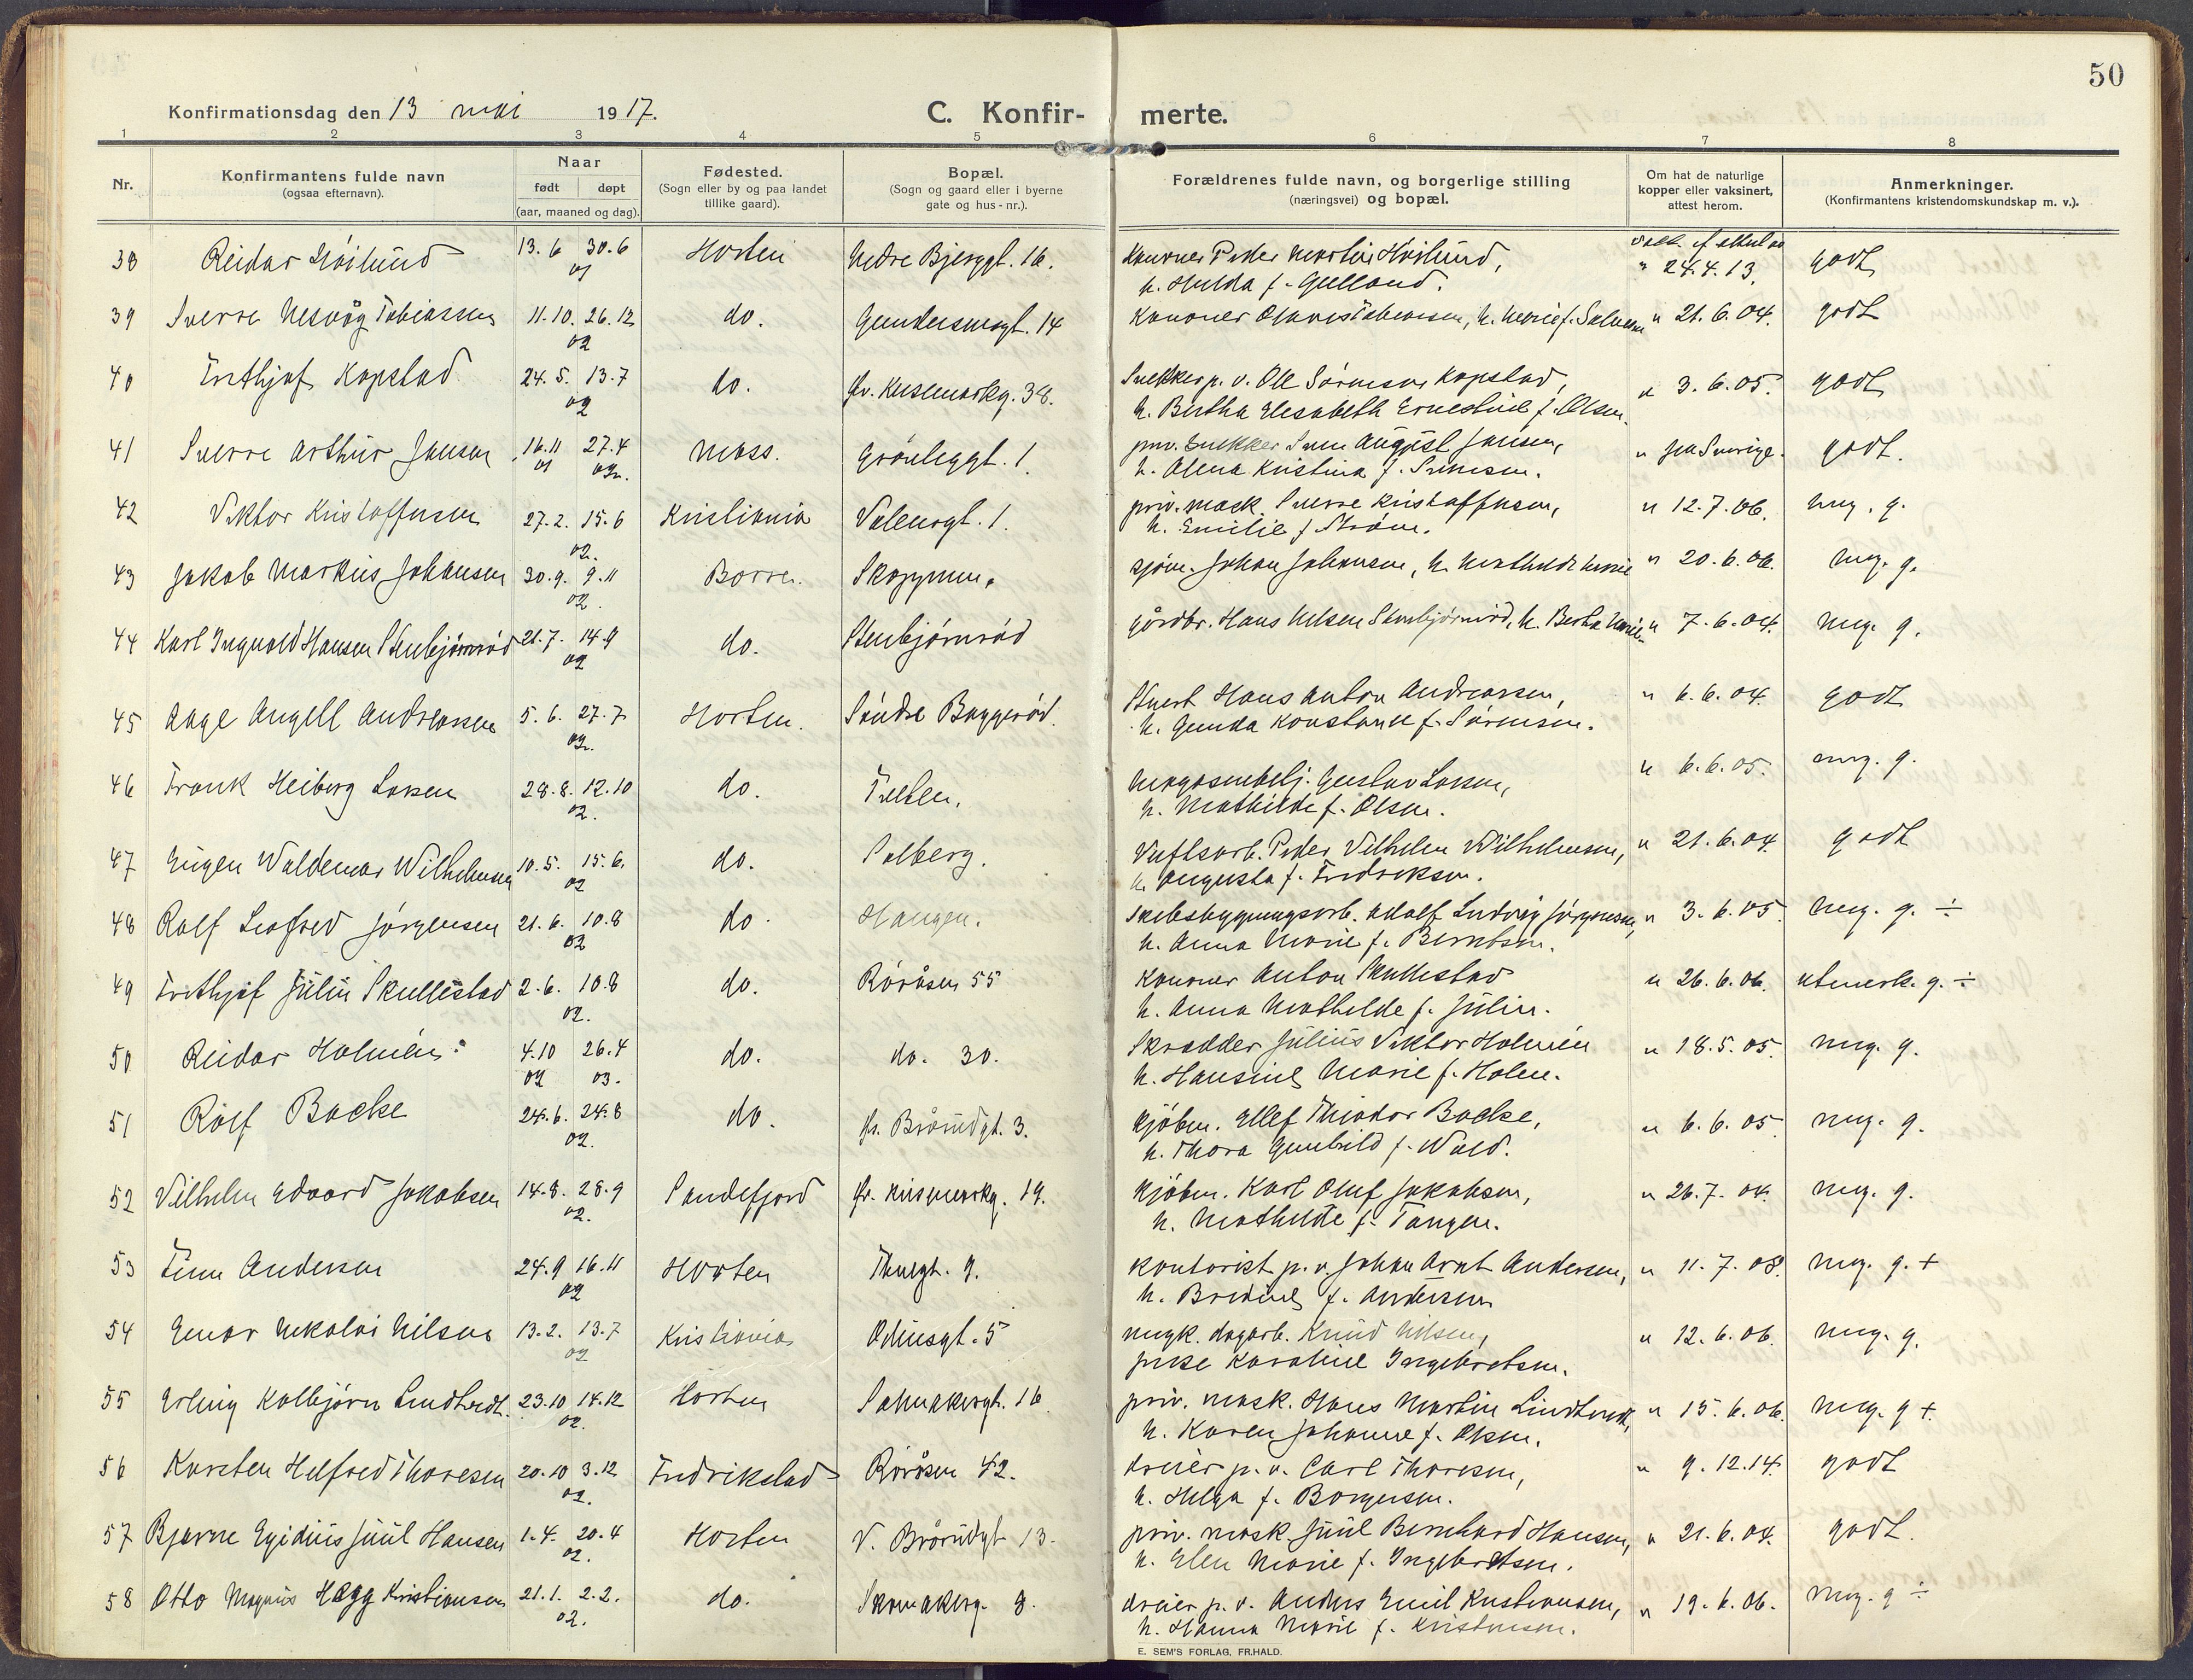 50
Konfirmationsdag den 13 mai 1917.
C. Konfir- merte.
1 2 3 4 5 6 7 8
Nr.
Konfirmantens fulde navn
(ogsaa efternavn).
Naar
født døpt
(aar, maaned og dag).
Fødested.
(Sogn eller by og paa landet
tillike gaard).
Bopæl.
(Sogn og gaard eller i byerne
gate og hus-nr.).
Forældrenes fulde navn, og borgerlige stilling
(næringsvei) og bopæl.
Om hat de naturlige
kopper eller vaksinert,
attest herom.
Anmerkninger.
(Konfirmantens kristendomskundskap m. v.).
38 Reidar Höilund 13.6 30.6 Horten Nedre Bjerggt. 16. Kanoner Peder Martin Höilund,
01 " 24.4.13. godt
h. Hulda f. Gulland.
39 Sverre Nesvåg Tobiassen 11.10. 26.12 do. Gundersensgt. 14 Kanoner Tobiassen, h. Marie f. " 21.6.04. godt
02
40 Frithjof Kopstad 24.5. 13.7 do. Øv. Keisemarkg. 38. Snekker p.v. Ole Sörensen Kopstad, " 3.6.05. godt
02 h. Bertha Elisabeth Ernestine f. Olsen.
41 Sverre Arthur Jansen 16.11 27.4 Moss. Grönliggt. 1. priv. Snekker Sven August Jansen, " fra Sverige. godt.
01 02. h. Olena Kristina f. Simensen.
42 Viktor Kristoffersen 27.2. 15.6 Kristiania Valensgt. 1. priv. mask. Sverre Kristoffersen, " 12.7.06. meg. g.
02. h. Emilie f. Ström.
43 Jakob Markus Johansen 30.9. 9.11 Borre. Skoppum. sjöm. Johan Johansen, h. Mathilde Marie " 20.6.06. meg. g.
02.
44 Karl Ingvald Hansen Stenbjörnröd 21.7. 14.9 do. Stenbjörnröd gårdbr. Hans Nilsen Stenbjörnröd, h. Berta Marie " 7.6.04. meg. g.
02
45 Aage Angell Andreassen 5.6. 27.7 Horten. Söndre Baggeröd. Stuert Hans Anton Andreassen, " 6.6.04. godt
02. h. Gunda Konstanse f. Sörensen.
46 Frank Heiberg Larsen 28.8. 12.10 do. Tveten. Magasinbetj. Gustav Larsen, " 6.6.05. meg. g.
02. h. Mathilde f. Olsen.
47 Eugen Waldemar Wilhelmsen 10.5. 15.6. do. Solberg. Verftsarb. Peder Vilhelm Wilhelmsen, " 21.6.04. godt
02 h. Augusta f. Fredriksen.
48 Rolf Leofred Jörgensen 21.6. 10.8 do. Haugen. Skibsbygningsarb. Adolf Ludvig Jörgensen, " 3.6.05. meg. g. ÷
02 h. Anna Marie f. Berntsen.
49 Frithjof Julin Skullestad 2.6. 10.8 do. Röråsen 55 Kanoner Anton Skullestad " 26.6.06. utmerk. g. ÷
02. h. Anna Mathilde f. Julin.
50 Reidar Holmén. 4.10 26.4 do. do. 30. Skrædder Julius Viktor Holmén " 18.5.05. meg. g.
02 03. h. Hansine Marie f. Holm.
51 Rolf Backe 24.6. 24.8 do. Øv. Brårudgt. 3. kjöbm. Ellef Theodor Backe, " 6.6.05. meg. g.
02. h. Thora Gunhild f. Wold.
52 Vilhelm Edvard Jakobsen 14.8. 28.9 Sandefjord Øv. Keisemarkg. 19. Kjöbm. Karl Oluf Jakobsen, " 26.7.04. meg. g.
02. h. Mathilde f. Tangen.
53 Finn Andersen 24.9 16.11 Horten Thuegt. 9. Kontorist p.v. Johan Arnt Andersen, " 11.7.08. meg. g. +
02 h. Bredine f. Andersen
54 Einar Nikolai Nilsen 13.2. 13.7 Kristiania Odinsgt. 5 ungk. dagarb. Knud Nilsen, " 12.6.06. meg. g.
02 pike Karoline Ingebretsen.
55 Erling Kolbjörn Lindtvedt. 23.10 14.12 Horten Skomakergt. 16 priv. mask. Hans Martin Lindtvedt, " 15.6.06. meg. g +
02. h. Karen Johanne f. Olsen.
56 Karsten Helfred Thoresen 20.10 3.12 Fredrikstad Röråsen 42. dreier p.v. Carl Thoresen, " 9.12.14. godt
02. h. Helga f. Borgersen.
57 Bjarne Egidius Juul Hansen 1.4. 20.4 Horten V. Brårudgt 13. priv. mask Juul Bernhard Hansen, " 21.6.04. godt.
02. h. Elen Marie f. Ingebretsen.
58 Otto Magnus Hagg Kristiansen 21.1. 2.2. do. Skomakerg. 8. dreier p.v. Anders Emil Kristiansen, " 19.6.06. meg. g ÷
02. h. Hanna Marie f. Kristensen.
E. SEM'S FORLAG, FR.HALD.